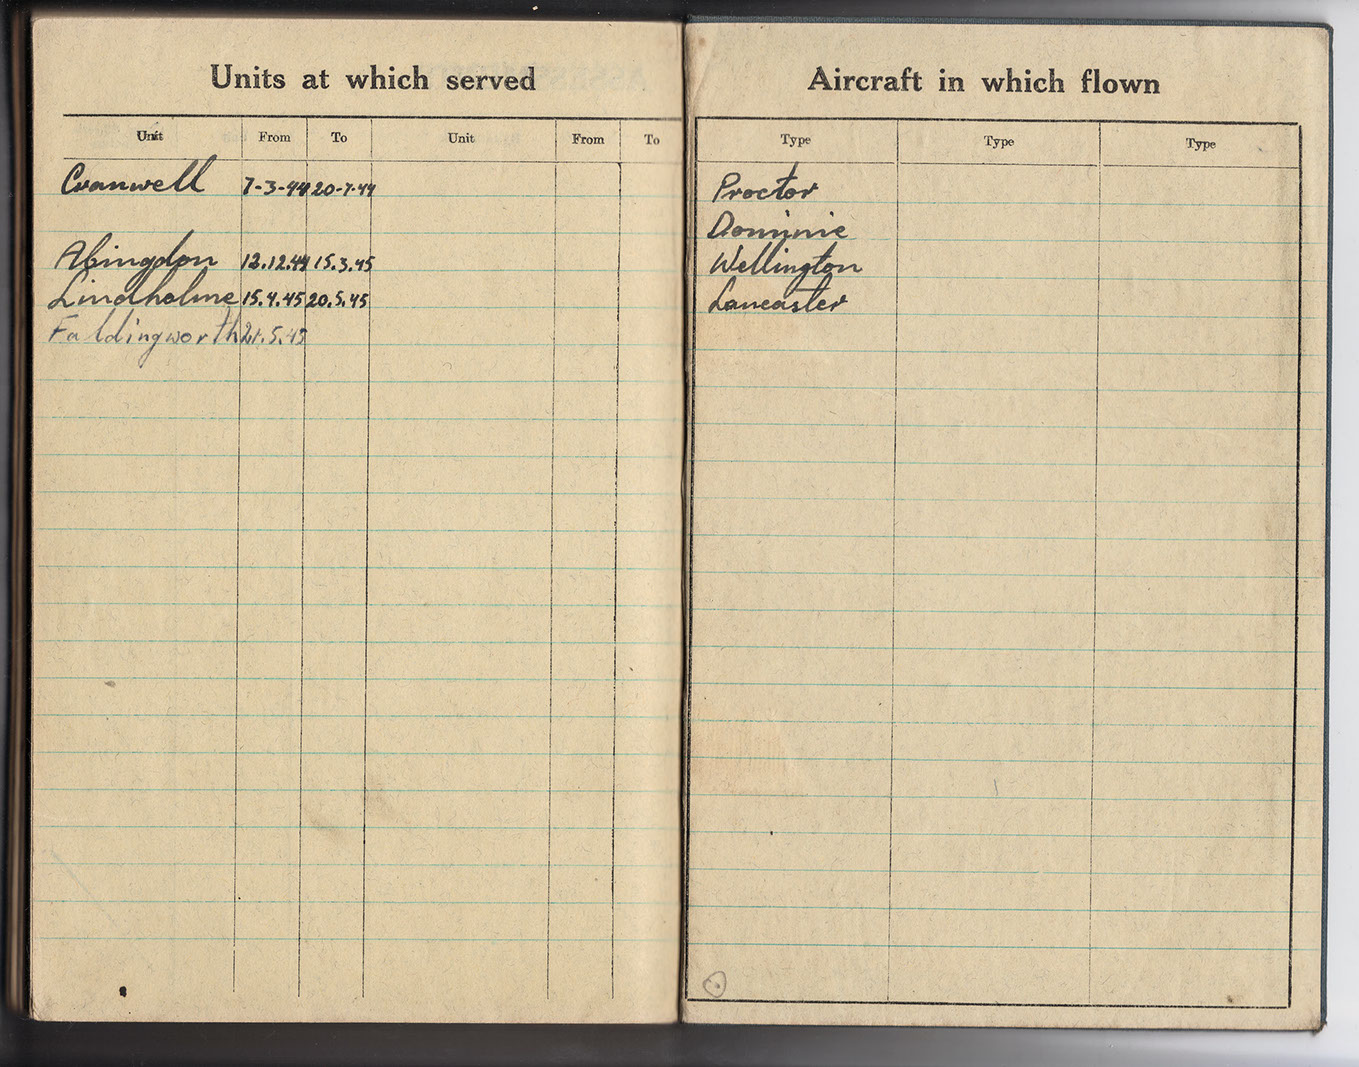 Units at which served
Unit From To Unit From To
Cranwell 7-3-44 20-7-44
Abingdon 12.12.44 15.3.45
Lindholme 15.4.45 20.5.45
Faldingworth 21.5.45
Aircraft in which flown
Type Type Type
Proctor
Dominie
Wellington
Lancaster